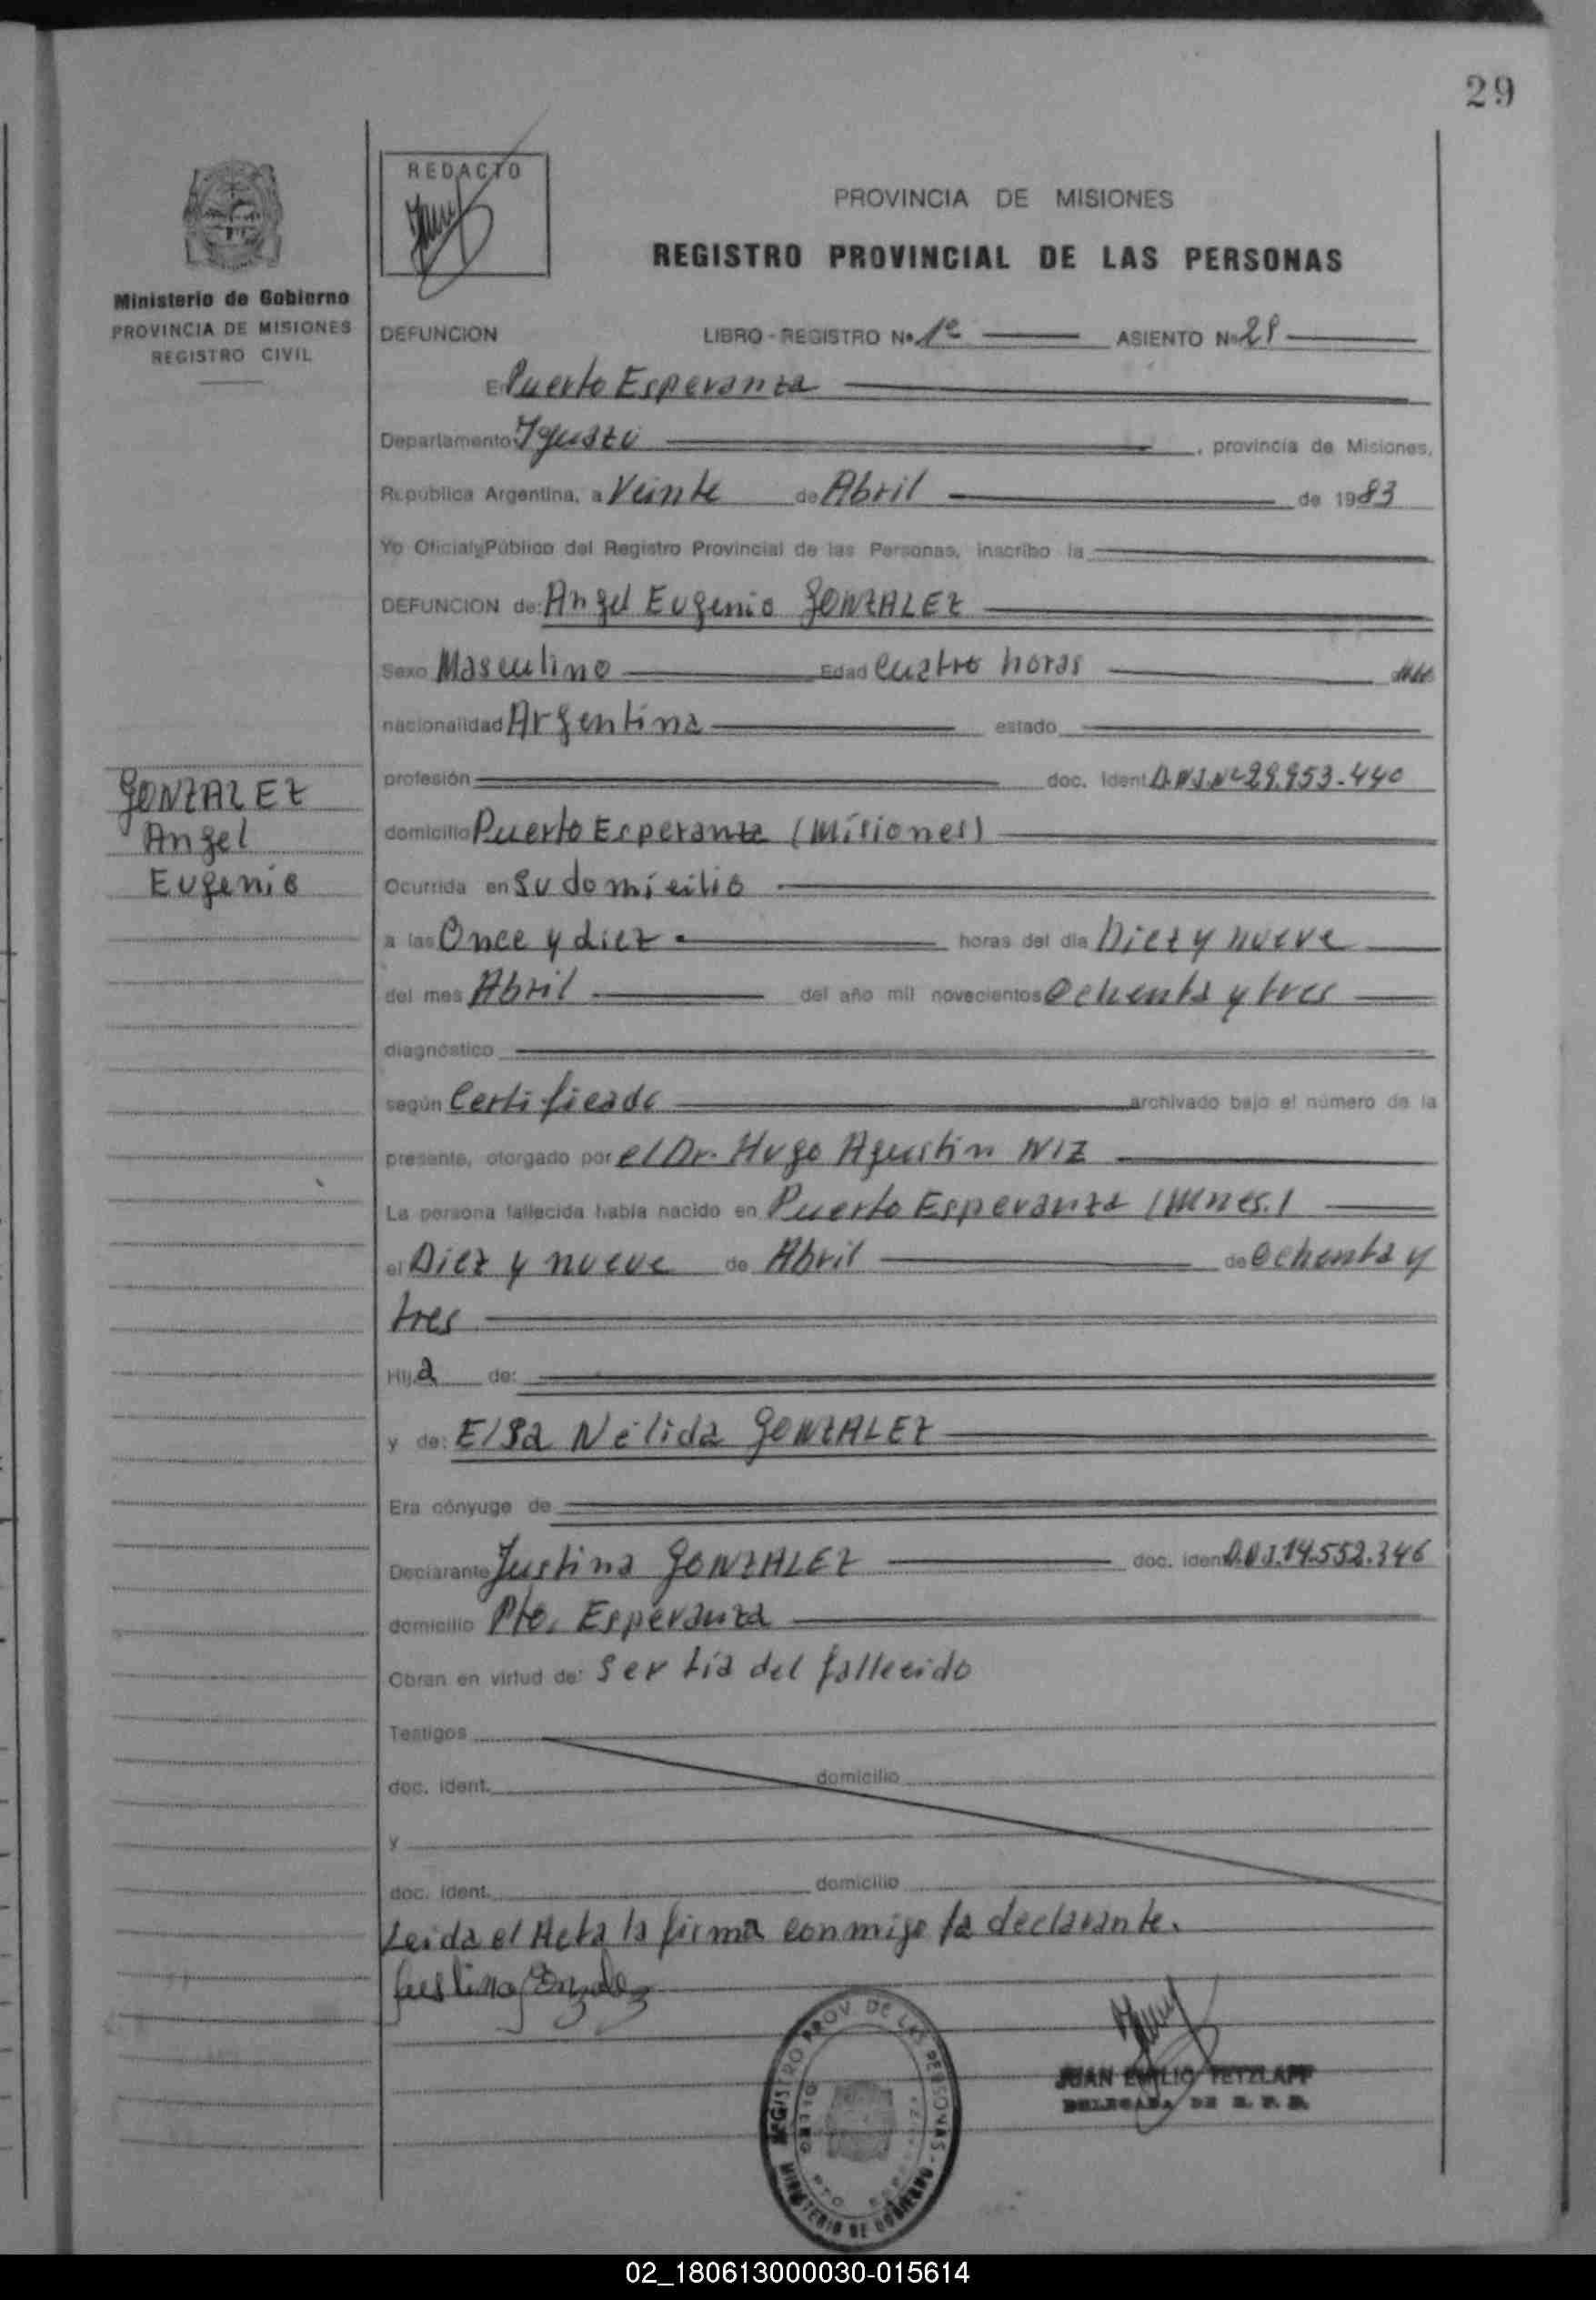 29
REDACTO
PROVINCIA DE MISIONES
REGISTRO PROVINCIAL DE LAS PERSONAS
Ministerio de Gobierno
PROVINCIA DE MISIONES
REGISTRO CIVIL
DEFUNCION LIBRO-REGISTRO Nº 1º ASIENTO Nº
En Puerto Esperanza
Departamento Iguazú, provincia de Misiones,
República Argentina, a Veinte de Abril de 1983
Yo Oficial Público del Registro Provincial de las Personas, inscribo la
DEFUNCION de: Angel Eugenio GONZALEZ
Sexo Masculino Edad Cuatro horas
nacionalidad Argentina estado
profesión doc. Ident. D.N.I.Nº 29.953.440
GONZALEZ
Angel
Eugenio
domicilio Puerto Esperanza (Misiones)
Ocurrida en Su domicilio
a las Once y diez horas del día Diez y nueve
del mes Abril del año mil novecientos Ochenta y tres
diagnóstico
según Certificado archivado bajo el número de la
presente, otorgado por el Dr. Hugo Agustin NIZ
La persona fallecida había nacido en Puerto Esperanza (Mnes.)
el Diez y nueve de Abril de Ochenta y
tres
Hija de:
y de: Elsa Nélida GONZALEZ
Era cónyuge de
Declarante Justina GONZALEZ doc. ident. D.N.I. 14.552.346
domicilio Pto. Esperanza
Obran en virtud de: Ser tía del fallecido
Testigos
doc. ident. domicilio
y
doc. ident. domicilio
Leida el Acta la firma conmigo la declarante.
Justina Gonzalez
REGISTRO PROV. DE LAS PERSONAS
MINISTERIO DE GOBIERNO
JUAN EMILIO TETZLAFF
02_180613000030-015614